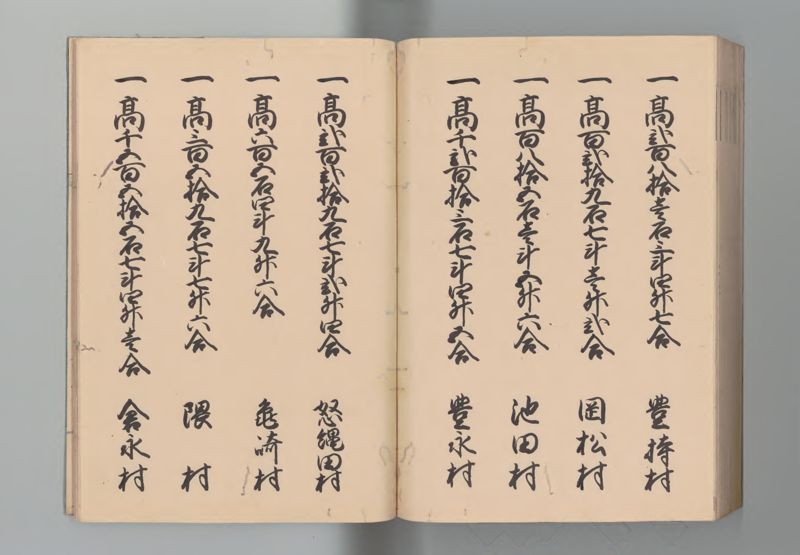 一高弐百八拾壱石三斗四升七合 豊持村
一高百弐拾九石七斗壱升弐合 岡松村
一高百八拾五石壱斗五升六合 池田村
一高千弐百拾三石七斗四升五合 豊永村
一高弐百弐拾九石七斗弐升四合 怒縄田村
一高六百五石四斗九升六合 亀崎村
一高三百五拾九石七斗七升六合 隈村
一高千五百五拾五石七斗四升壱合 倉永村